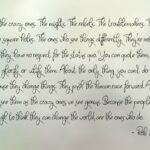 the crazy ones. The misfits. The rebels. The troublemakers. The
square holes. The ones who see things differently. They're not
they have no respect for the status quo. You can quote them,
glorify or vilify them. About the only thing you can't do
they change things. They push the human race forward. A
see them as the crazy ones, we see genius. Because the people
to think they can change the world, are the ones who do.
- Rob